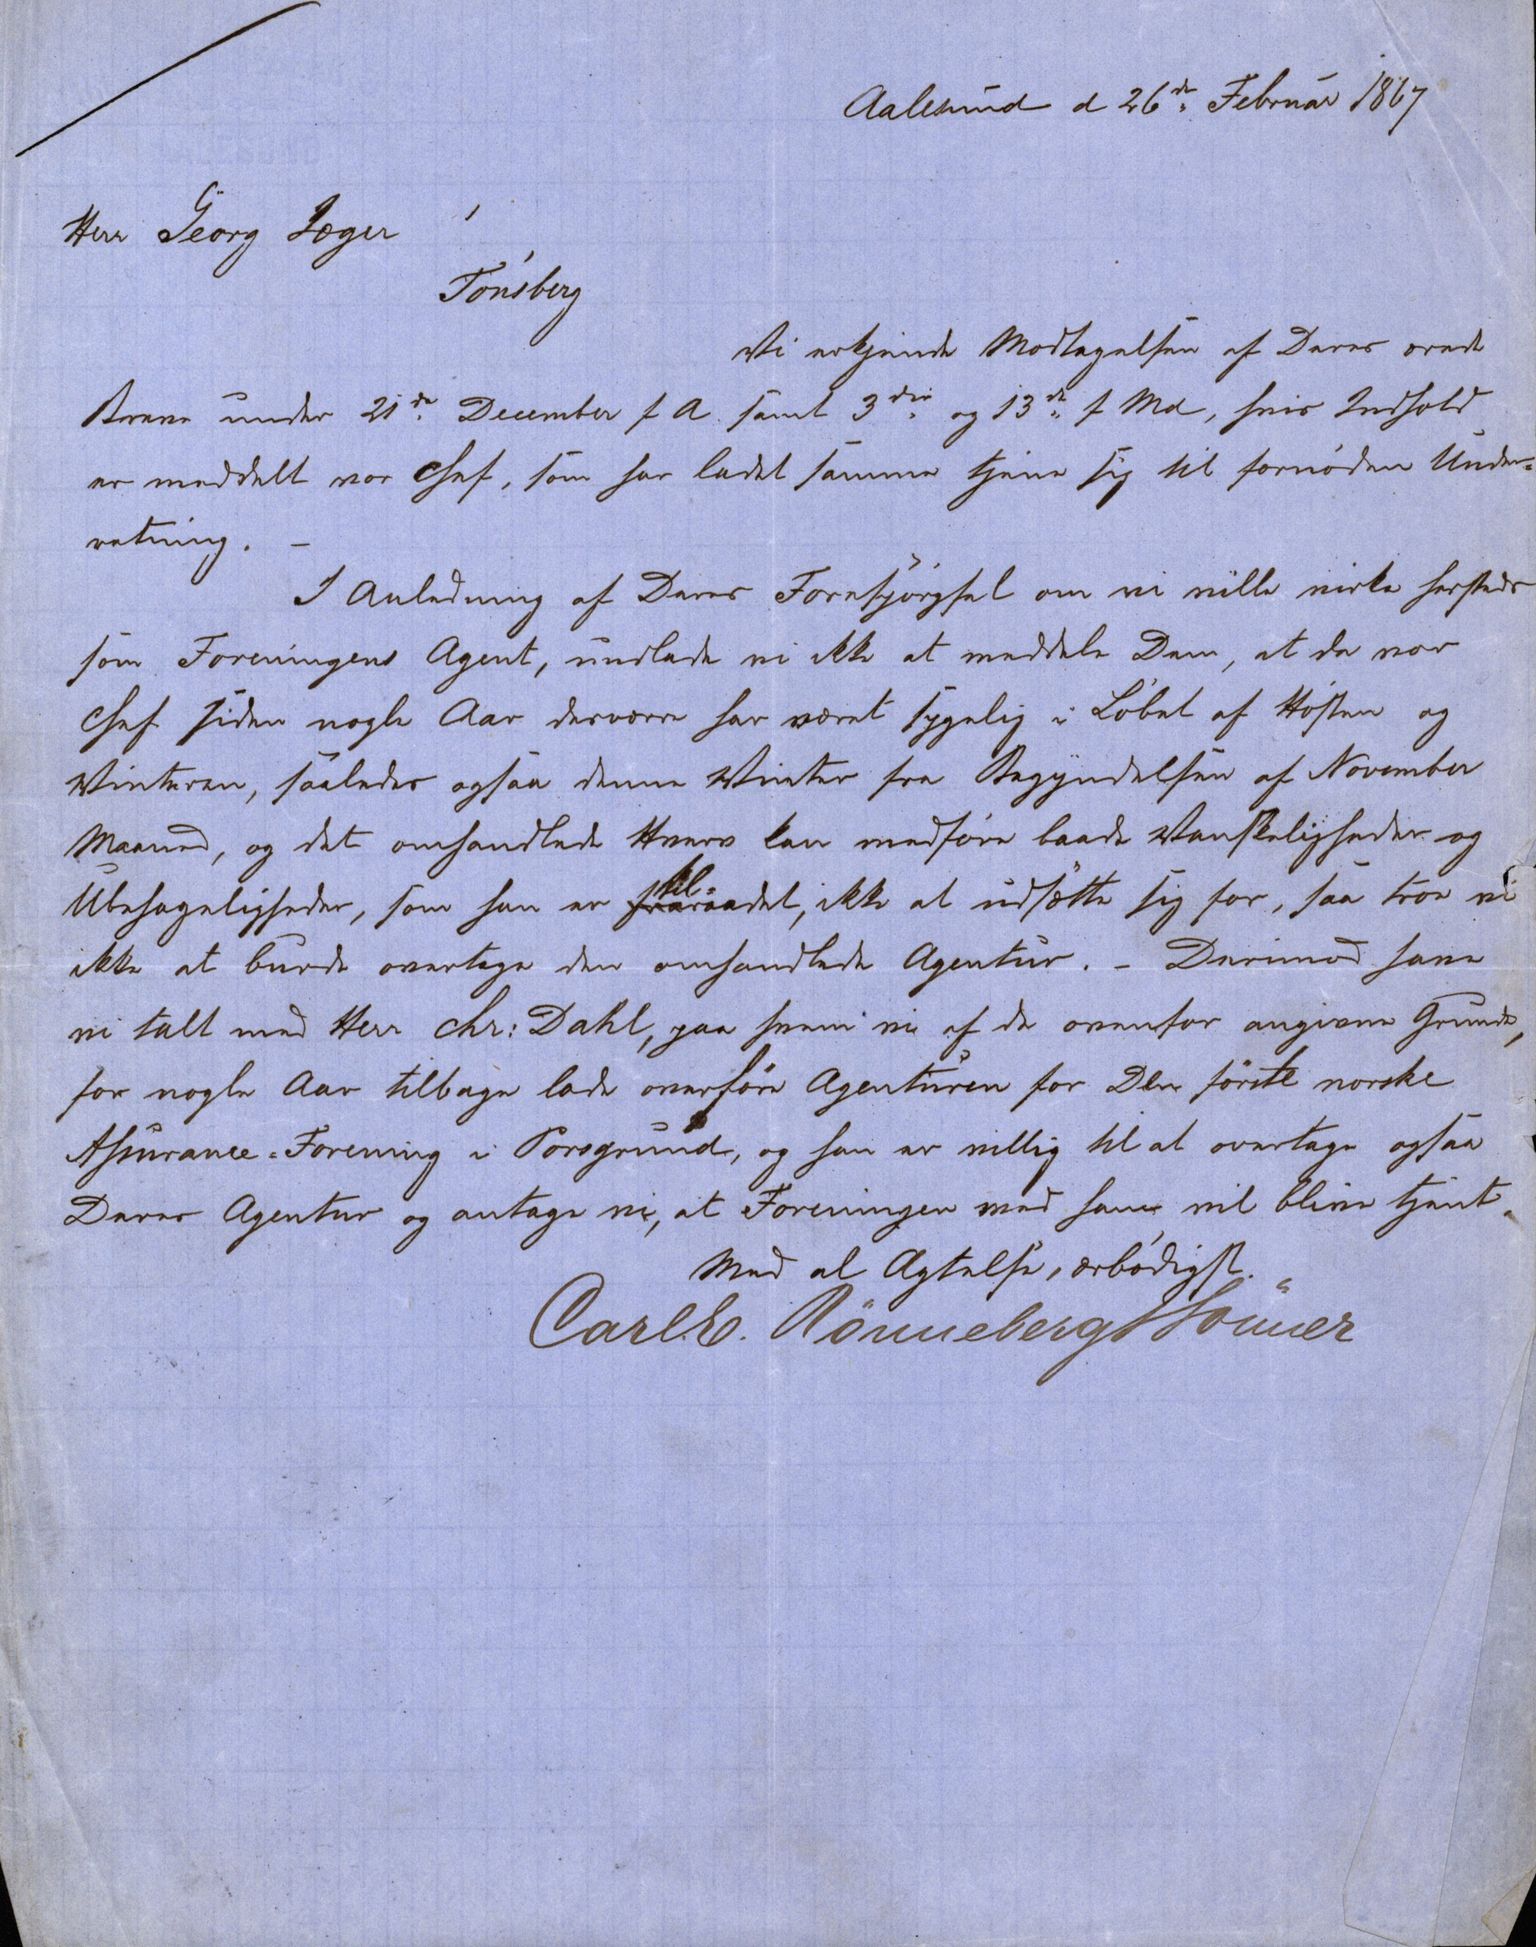 Aalesund d 26de Februar 1867
Herr Georg Jæger
Tønsberg
Vi erkjende Modtagelsen af Deres ærede
Breve under 21de December f A. samt 3die og 13de f Md, hvis Indhold
er meddelt vor Chef, som har ladet samme tjene sig til fornøden Under-
retning. –
I Anledning af Deres Forespørgsel om vi ville virke hersteds
som Foreningens Agent, undlade vi ikke at meddele Dem, at da vor
Chef siden nogle Aar desværre har været sygelig i Løbet af Høsten og
Vinteren, saaledes ogsaa denne Vinter fra Begyndelsen af November
Maaned, og det omhandlede Hverv kan medføre baade Vanskeligheder og
Ubehageligheder, som han er tilraadet, ikke at udsætte sig for, saa troe vi
ikke at burde overtage den omhandlede Agentur. – Derimod have
vi talt med Herr Chr: Dahl, paa hvem vi af de ovenfor angivne Grunde,
for nogle Aar tilbage lode overføre Agenturen for Den første norske
Assurance-Forening i Porsgrund, og han er villig til at overtage ogsaa
Deres Agentur og antage vi, at Foreningen med ham vil blive tjent.
Med al Agtelse, ærbødigst.
Carl E. Rönneberg & Sönner